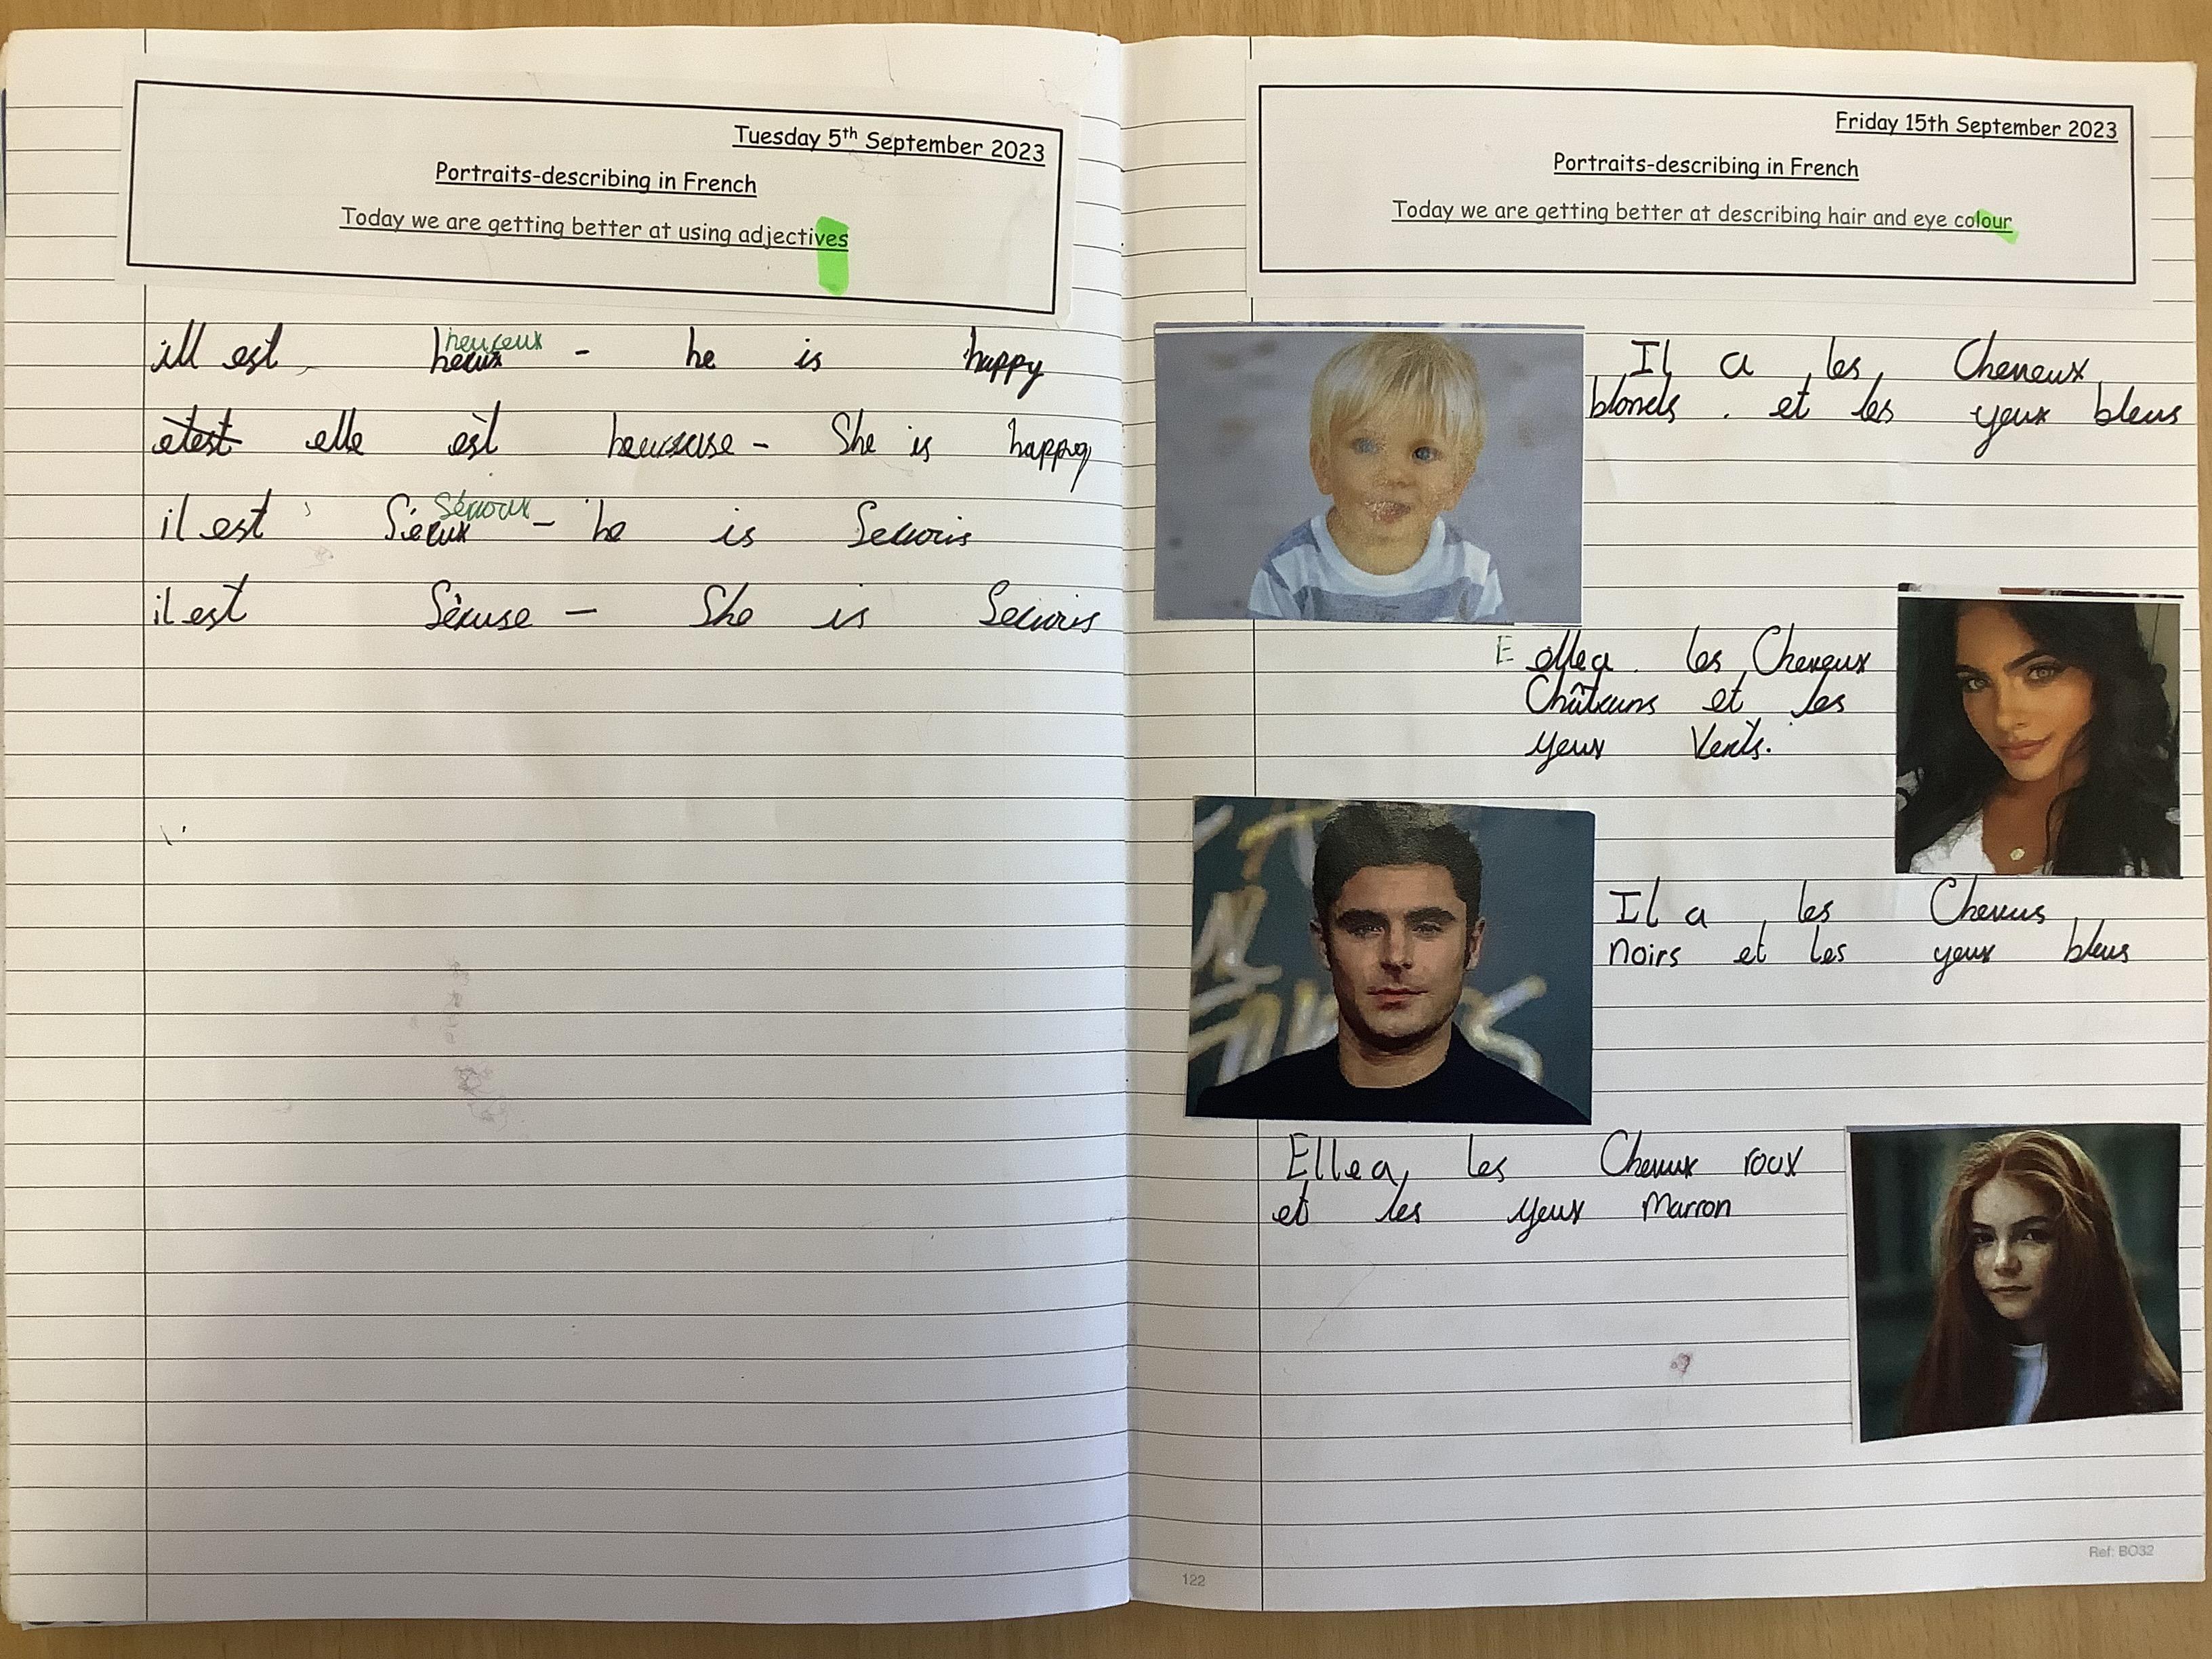 Tuesday 5th September 2023
Portraits-describing in French
Today we are getting better at using adjectives
ill est heureux - he is happy
etest elle est - She is happy
il est Sérioux - he is
il est Sèruse - She is
Friday 15th September 2023
Portraits-describing in French
Today we are getting better at describing hair and eye colour
Il a les Cheveux
blonds. et les yeux bleus
E elle a les Cheveux
Châtains et les
yeux Verts.
Il a les Cheveus
noirs et les yeux bleus
Elle a les Cheveux roux
et les yeux Marron
122
Ref: BO32